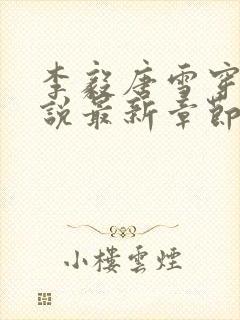 李毅唐雪穿
說最新章節
小樓雲煙